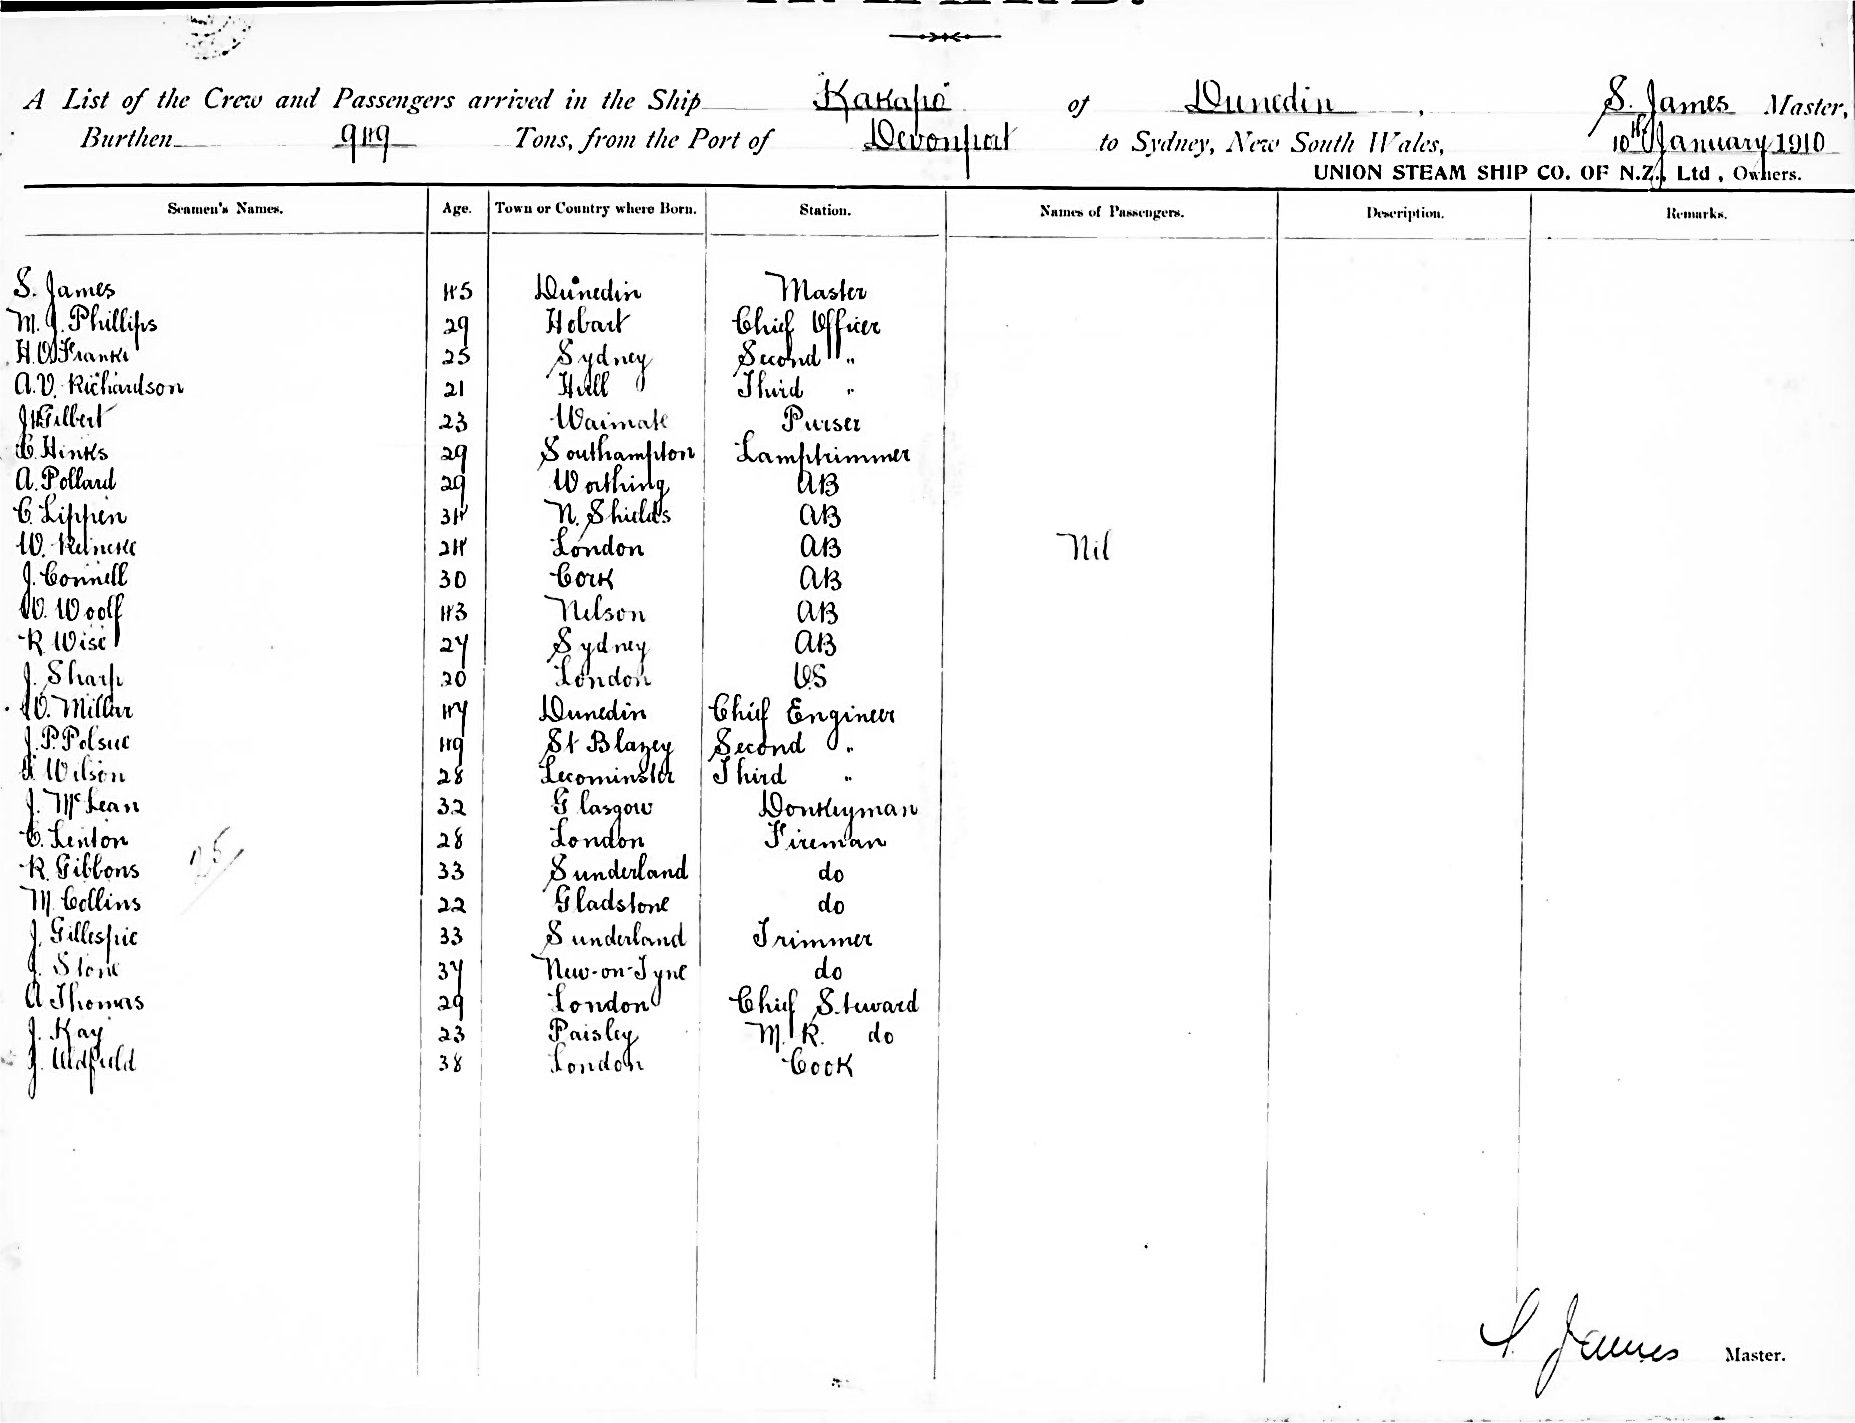 A List of the Crew and Passengers arrived in the Ship Kakapo of Dunedin, S. James Master,
Burthen 949 Tons, from the Port of Devonport to Sydney, New South Wales, 10th January 1910
UNION STEAM SHIP CO. OF N.Z., Ltd, Owners.
Seamen's Names. Age. Town or Country where Born. Station. Names of Passengers. Description. Remarks.
S. James 45 Dunedin Master
M. J. Phillips 29 Hobart Chief Officer
H. O. Franke 25 Sydney Second "
A. V. Richardson 21 Hull Third "
J H Gilbert 23 Waimate Purser
C. Hinks 29 Southampton Lamptrimmer
A. Pollard 29 Worthing AB
C. Lippen 34 N. Shields AB
W. Reineke 24 London AB Nil
J. Connell 30 Cork AB
W. Woolf 43 Nelson AB
R Wise 27 Sydney AB
J. Sharp 20 London O.S
W. Millar 47 Dunedin Chief Engineer
J. P. Polsue 49 St Blazey Second "
Wilson 28 Leominster Third "
J. McLean 32 Glasgow Donkeyman
C. Lenton 28 London Fireman
R. Gibbons 33 Sunderland do
25/
M. Collins 22 Gladstone do
J. Gillespie 33 Sunderland Trimmer
J. Stone 37 New-on-Tyne do
A Thomas 29 London Chief Steward
J. Kay 23 Paisley M. R. do
J. Oldfield 38 London Cook
S. James Master.